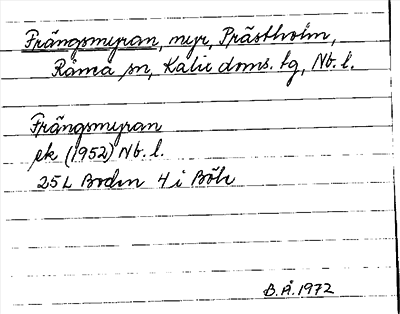 Frängsmyran, myr, Prästholm,
Rånea sn, Kalix doms. tg, Nb. l.
Frängsmyran
ek (1952) Nb. l.
25L Boden 4 i Böle
B.Å. 1972